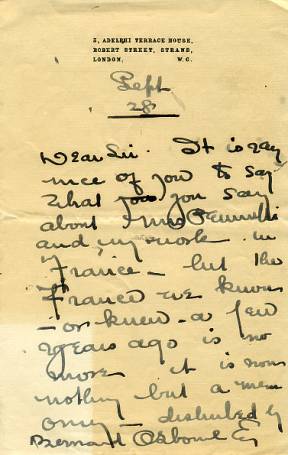 3, ADELPHI TERRACE HOUSE,
ROBERT STREET, STRAND,
LONDON, W.C.
Sept
28
Dear Sir. It is very
nice of you to say
what you you say
about Mrs Pennell's
and my work in
France – but the
France we knew
– or knew – a few
years ago is no
more it is now
nothing but a mem
ory – disturbed by
Bernard Osborne Eq